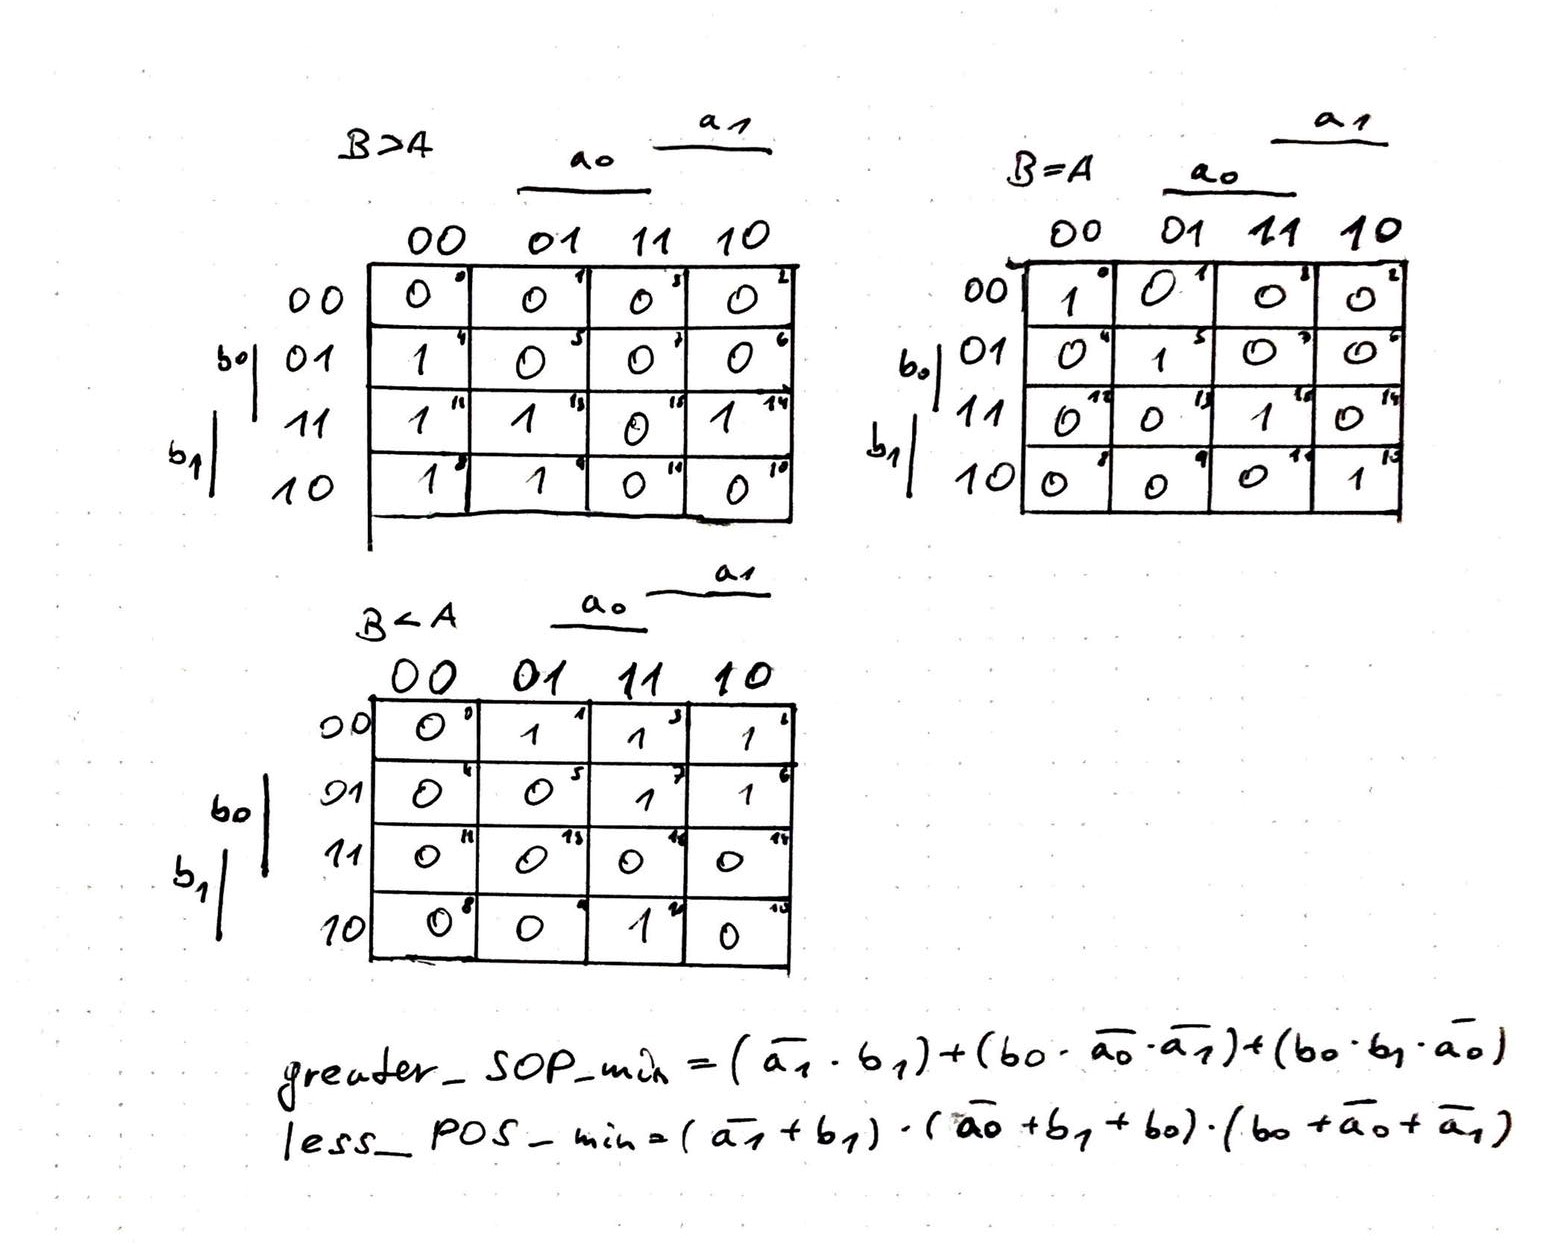 B>A
a0
a1
00 01 11 10
00 0 0 0 1 0 3 0 2
b0 01 1 4 0 5 0 7 0 6
11 1 11 1 13 0 15 1 14
b1
10 1 8 1 9 0 11 0 10
B=A
a0
a1
00 01 11 10
00 1 0 0 1 0 3 0 2
b0 01 0 4 1 5 0 7 0 6
11 0 12 0 13 1 15 0 14
b1
10 0 8 0 9 0 11 1
B<A
a0
a1
00 01 11 10
00 0 0 1 1 1 3 1 2
01 0 4 0 5 1 7 1 6
b0
11 0 11 0 13 0 0 14
b1
10 0 8 0 9 1 0
greater_SOP_min = (a̅1 · b1) + (b0 · a̅0 · a̅1) + (b0 · b1 · a̅0)
less_POS_min = (a̅1 + b1) · (a̅0 + b1 + b0) · (b0 + a̅0 + a̅1)